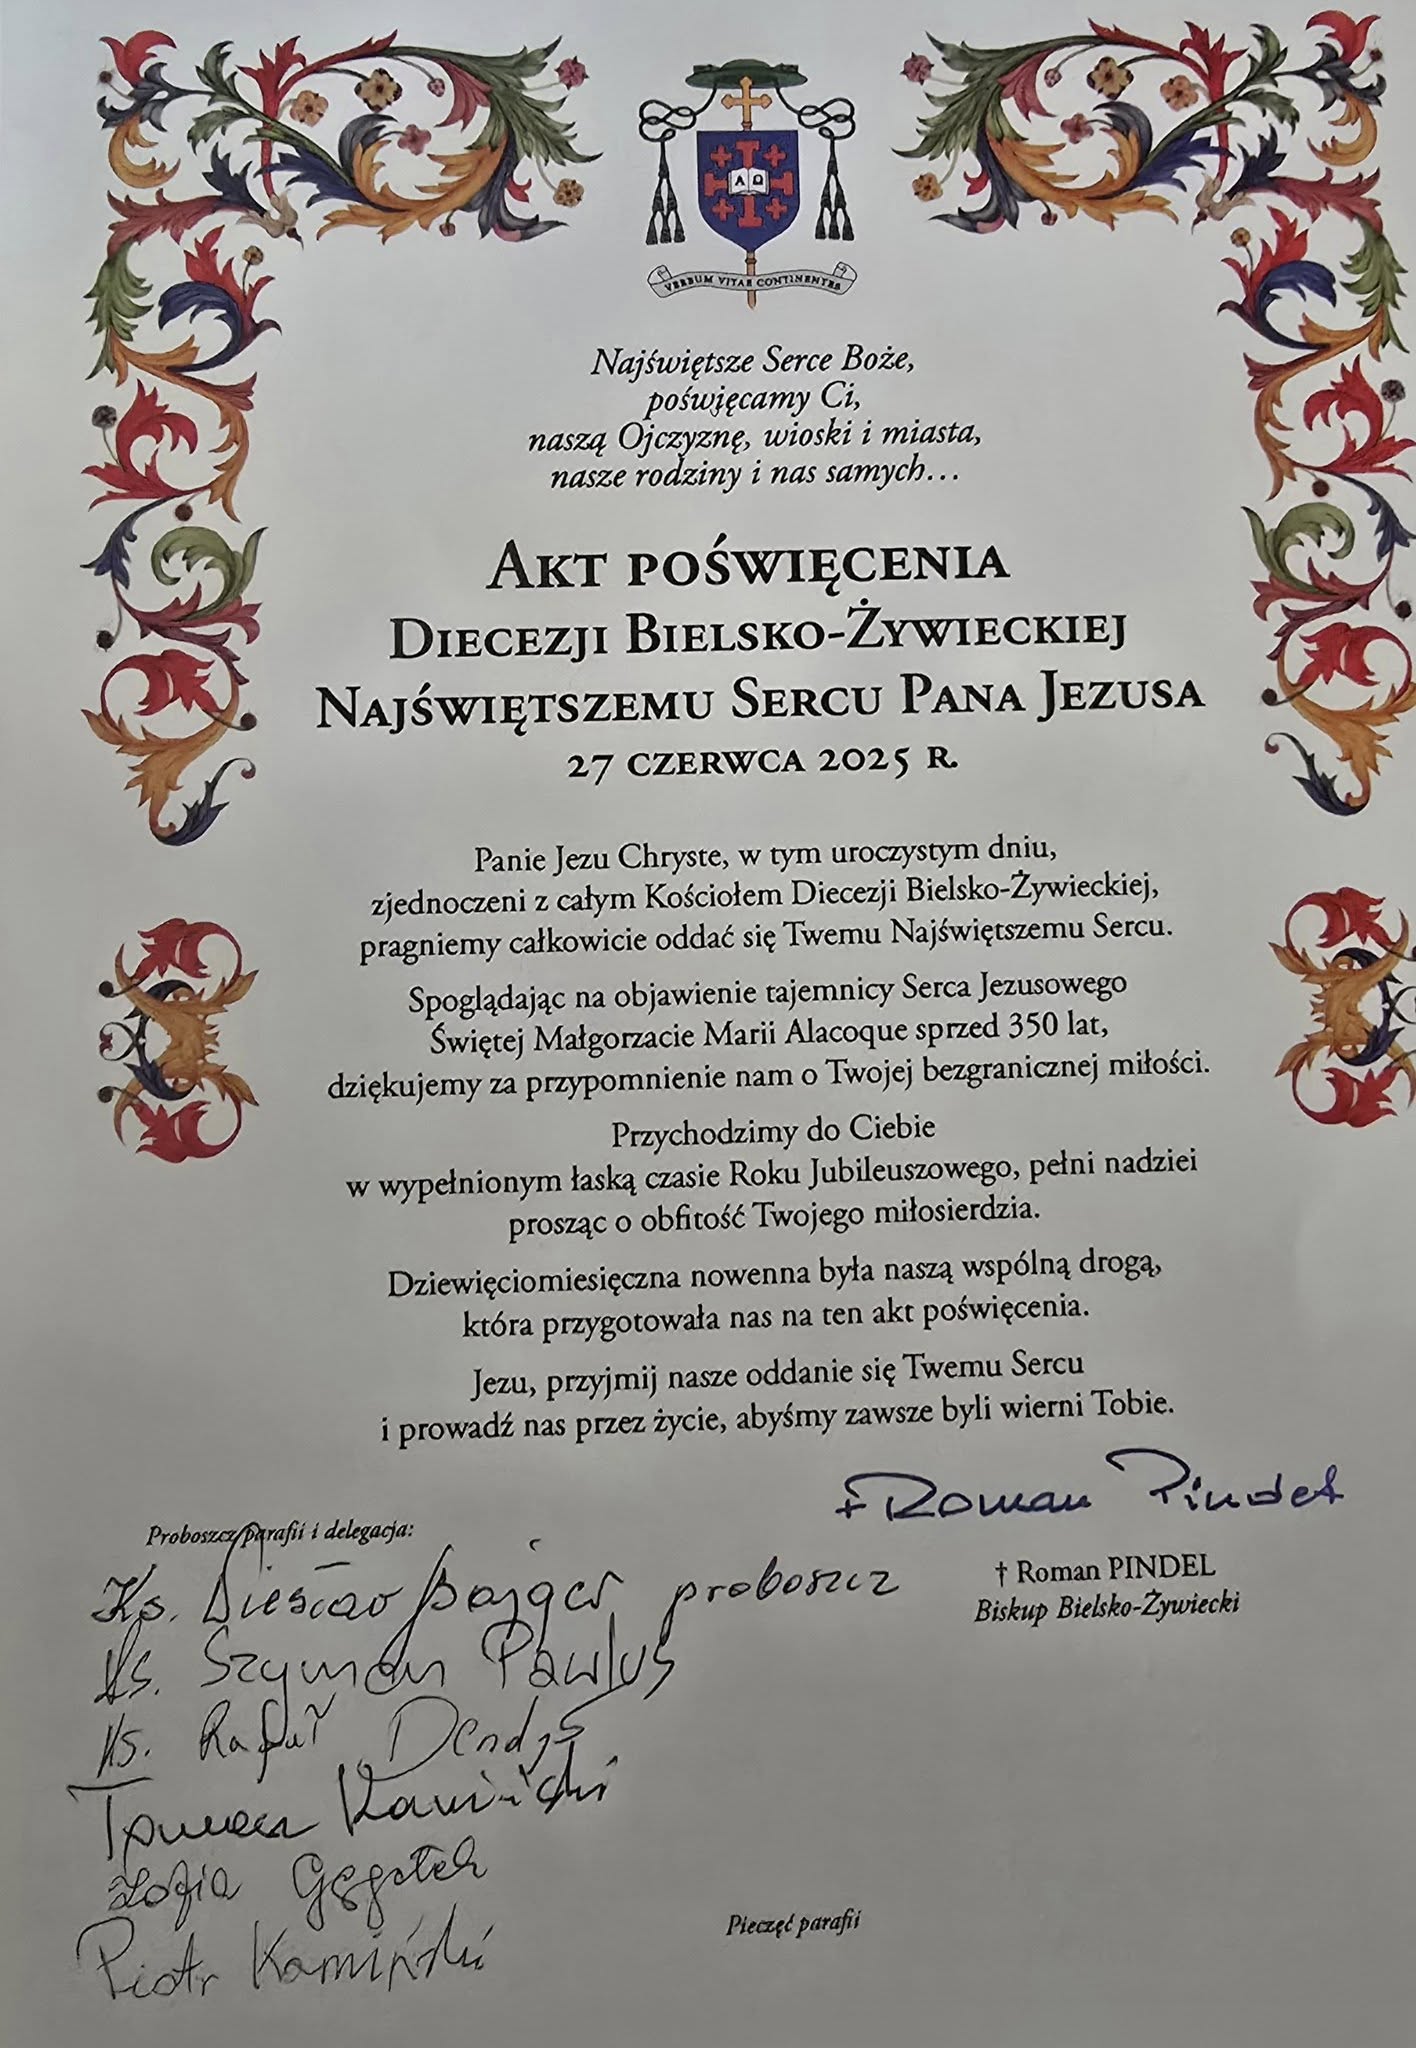 A Ω
VERBUM VITAE CONTINENTES
Najświętsze Serce Boże,
poświęcamy Ci,
naszą Ojczyznę, wioski i miasta,
nasze rodziny i nas samych...
AKT POŚWIĘCENIA
DIECEZJI BIELSKO-ŻYWIECKIEJ
NAJŚWIĘTSZEMU SERCU PANA JEZUSA
27 CZERWCA 2025 R.
Panie Jezu Chryste, w tym uroczystym dniu,
zjednoczeni z całym Kościołem Diecezji Bielsko-Żywieckiej,
pragniemy całkowicie oddać się Twemu Najświętszemu Sercu.
Spoglądając na objawienie tajemnicy Serca Jezusowego
Świętej Małgorzacie Marii Alacoque sprzed 350 lat,
dziękujemy za przypomnienie nam o Twojej bezgranicznej miłości.
Przychodzimy do Ciebie
w wypełnionym łaską czasie Roku Jubileuszowego, pełni nadziei
prosząc o obfitość Twojego miłosierdzia.
Dziewięciomiesięczna nowenna była naszą wspólną drogą,
która przygotowała nas na ten akt poświęcenia.
Jezu, przyjmij nasze oddanie się Twemu Sercu
i prowadź nas przez życie, abyśmy zawsze byli wierni Tobie.
+ Roman Pindel
† Roman PINDEL
Biskup Bielsko-Żywiecki
Proboszcz parafii i delegacja:
Ks. proboszcz
Ks. Szymon Pawlus
Ks. Rafał
Tomasz Kamiński
Zofia
Piotr Kamiński
Pieczęć parafii